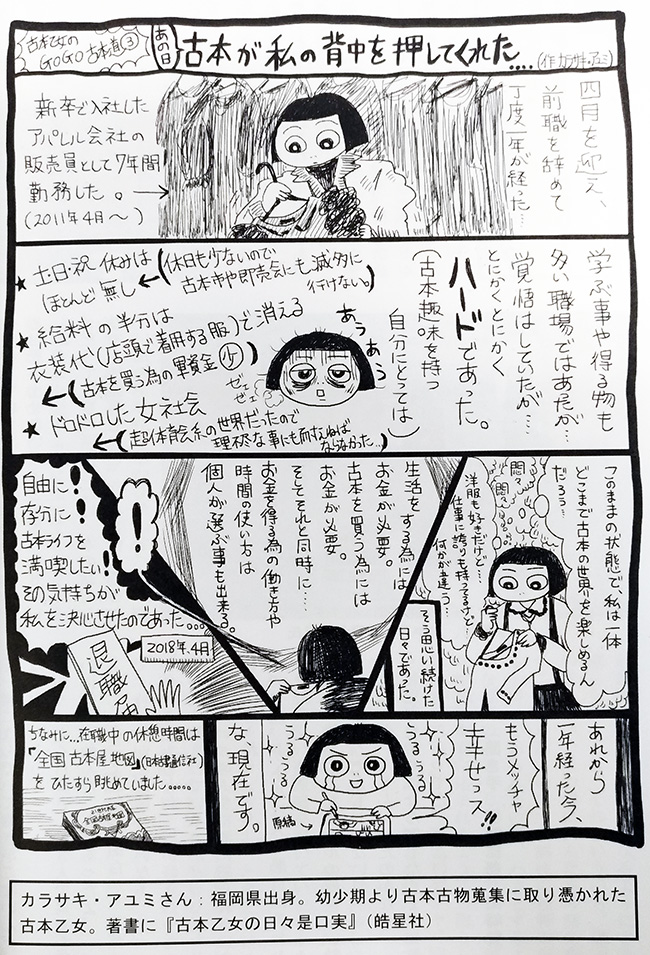 古本乙女の
GOGO古本道③
あの日
古本が私の背中を押してくれた....
(作 カラサキ・アユミ)
四月を迎え、
前職を辞めて
丁度一年が経った…
新卒で入社した
アパレル会社の
販売員として7年間
勤務した。
(2011年4月〜)
学ぶ事や得る物も
多い職場ではあったが…
覚悟はしていたが…
とにかくとにかく
ハードであった。
(古本趣味を持つ
自分にとっては)
あうあう
ゼェゼェ
★土日・祝 休みは
ほとんど無し
(休日も少ないので
古本市や即売会にも滅多に
行けない。)
★給料の半分は
衣装代(店頭で着用する服)で消える
(古本を買う為の軍資金少)
★ドロドロした女社会
(超体育会系の世界だったので
理不尽な事にも耐えねば
ならなかった…)
このままの状態で、私は一体
どこまで古本の世界を楽しめるん
だろう…
悶々…
悶々…
洋服も好きだけど…
仕事に誇りも持ってるけど…
何かが違う…
そう思い続けた
日々であった。
生活をする為には
お金が必要。
古本を買う為には
お金が必要。
そしてそれと同時に…
お金を得る為の働き方や
時間の使い方は
個人が選ぶ事も出来る。
!
自由に!
存分に!
古本ライフを
満喫したい!
その気持ちが
私を決心させたのであった…
2018年.4月
退職届
あれから
一年経った今、
もうメッチャ
幸せっス!!
な、現在です。
うるうる
うるうる
原稿
ちなみに…在職中の休憩時間は
『全国古本屋地図』(日本古書通信社)
をひたすら眺めていました.....
全国古本屋地図
カラサキ・アユミさん：福岡県出身。幼少期より古本古物蒐集に取り憑かれた
古本乙女。著書に『古本乙女の日々是口実』（皓星社）